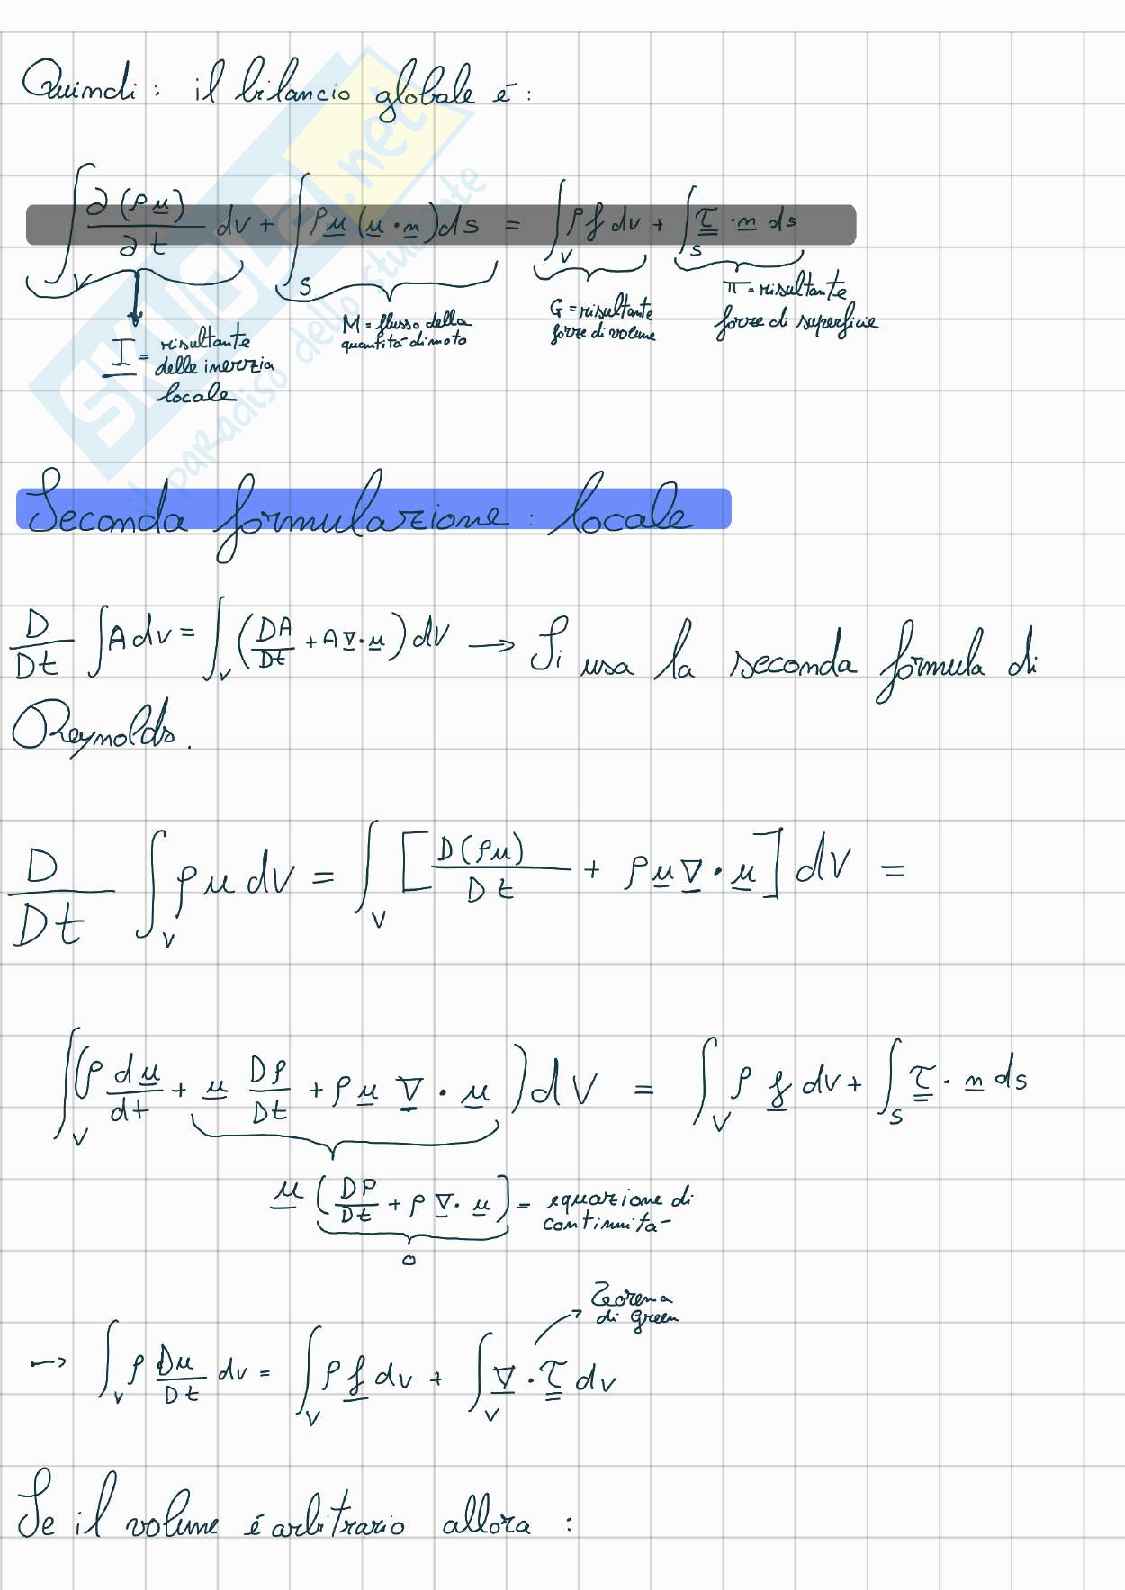 Quindi: il bilancio globale é:
∫_V ∂(ρu̲)/∂t dv + ∫_S ρu̲(u̲·n̲)ds = ∫_V ρf dv + ∫_S τ̳·n̲ ds
I̲ = risultante delle inerzia locale
M = flusso della quantità di moto
G = risultante forze di volume
π = risultante forze di superficie
SKUOLA.net
il paradiso dello studente
Seconda formulazione: locale
D/Dt ∫A dv = ∫_V (DA/Dt + A∇̲·u̲)dv → Si usa la seconda formula di
Reynolds.
D/Dt ∫_V ρu dv = ∫_V [D(ρu)/Dt + ρu̲∇̲·u̲] dv =
∫_V (ρ du̲/dt + u̲ Dρ/Dt + ρu̲ ∇̲·u̲)dv = ∫_V ρ f̲ dv + ∫_S τ̳·n̲ ds
u̲ (Dρ/Dt + ρ∇̲·u̲) = equazione di
continuità
0
Teorema
di green
→ ∫_V ρ Du/Dt dv = ∫_V ρf̲ dv + ∫_V ∇̲·τ̳ dv
Se il volume é arbitrario allora: